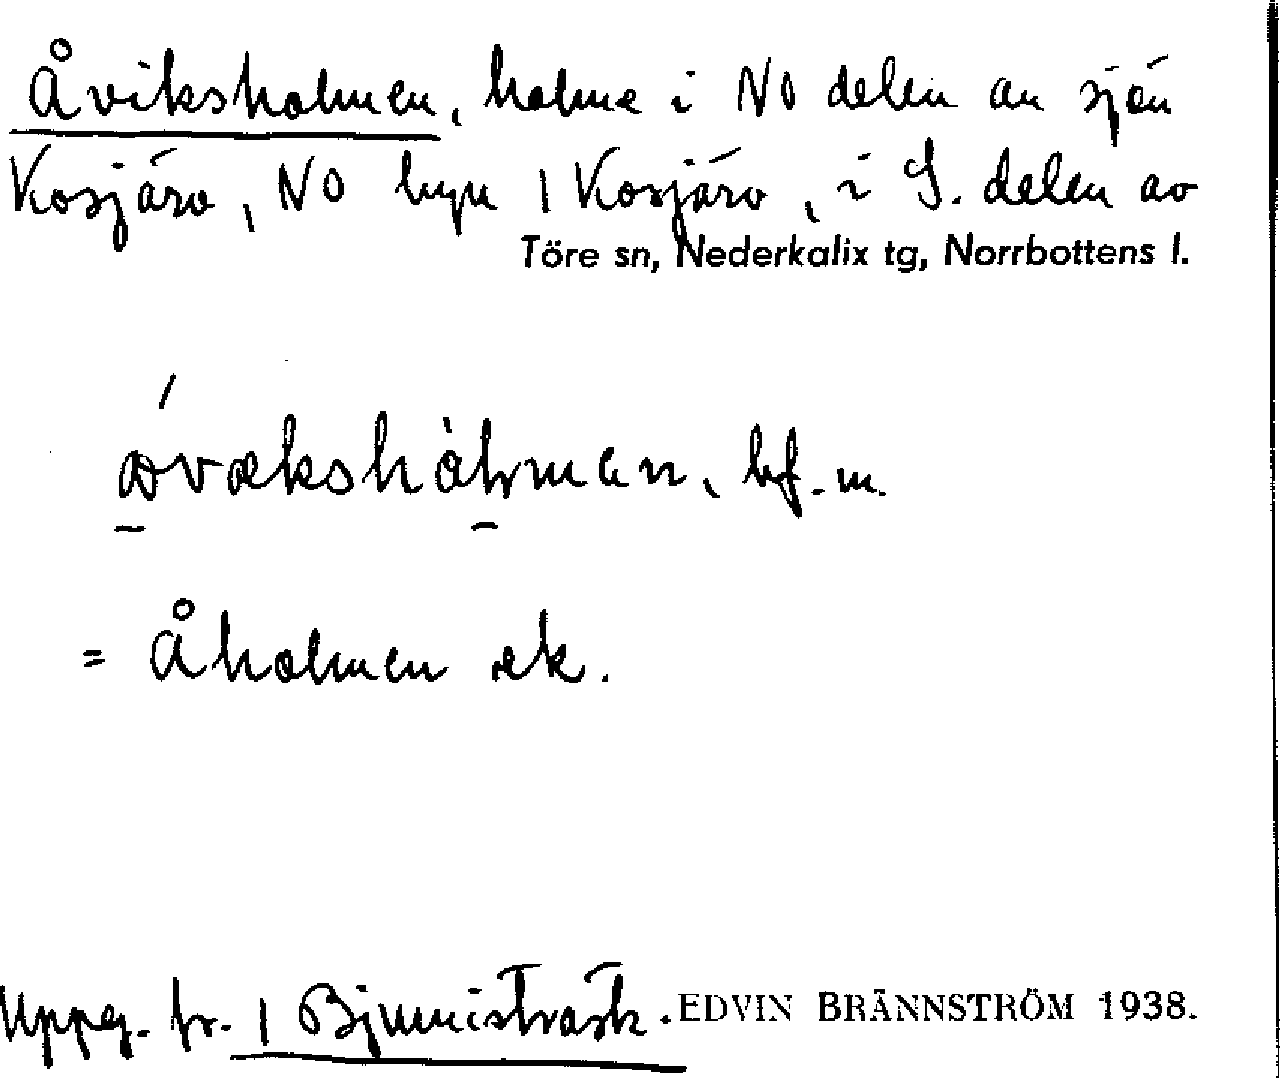 Åviksholmen, holme i NO delen av sjön
Kosjärv, NO byn 1 Kosjärv, i S. delen av
Töre sn, Nederkalix tg, Norrbottens l.
bf. m.
= Åholmen ek.
Uppg. fr. 1 Bjumisträsk. EDVIN BRÄNNSTRÖM 1938.